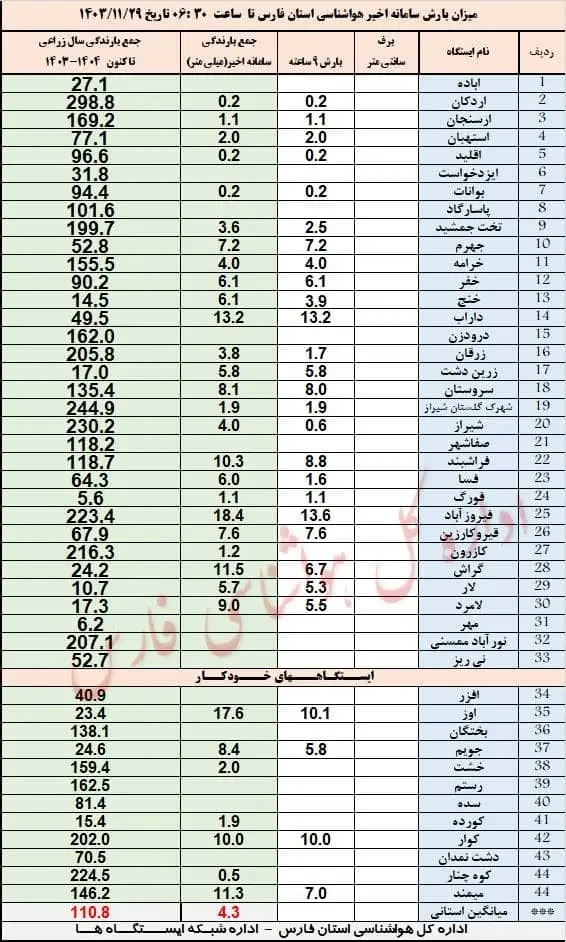 میزان بارش سامانه اخیر هواشناسی استان فارس تا ساعت ۰۶:۳۰ تاریخ ۱۴۰۳/۱۱/۲۹
ردیف نام ایستگاه برف سانتی متر بارش ۹ ساعته جمع بارندگی سامانه اخیر(میلی متر) جمع بارندگی سال زراعی تاکنون ۱۴۰۴-۱۴۰۳
۱ اباده 27.1
۲ اردکان 0.2 0.2 298.8
۳ ارسنجان 1.1 1.1 169.2
۴ استهبان 2.0 2.0 77.1
۵ اقلید 0.2 0.2 96.6
۶ ایزدخواست 31.8
۷ بوانات 0.2 0.2 94.4
۸ پاسارگاد 101.6
۹ تخت جمشید 2.5 3.6 199.7
۱۰ جهرم 7.2 7.2 52.8
۱۱ خرامه 4.0 4.0 155.5
۱۲ خفر 6.1 6.1 90.2
۱۳ خنج 3.9 6.1 14.5
۱۴ داراب 13.2 13.2 49.5
۱۵ درودزن 162.0
۱۶ زرقان 1.7 3.8 205.8
۱۷ زرین دشت 5.8 5.8 17.0
۱۸ سروستان 8.0 8.1 135.4
۱۹ شهرک گلستان شیراز 1.9 1.9 244.9
۲۰ شیراز 0.6 4.0 230.2
۲۱ صفاشهر 118.2
۲۲ فراشبند 8.8 10.3 118.7
۲۳ فسا 1.6 6.0 64.3
۲۴ فورگ 1.1 1.1 5.6
۲۵ فیروزآباد 13.6 18.4 223.4
۲۶ قیروکارزین 7.6 7.6 67.9
۲۷ کازرون 1.2 216.3
۲۸ گراش 6.7 11.5 24.2
۲۹ لار 5.3 5.7 10.7
۳۰ لامرد 5.5 9.0 17.3
۳۱ مهر 6.2
۳۲ نورآباد ممسنی 207.1
۳۳ نی ریز 52.7
ایستگاههای خودکار
۳۴ افزر 40.9
۳۵ اوز 10.1 17.6 23.4
۳۶ بختگان 138.1
۳۷ جویم 5.8 8.4 24.6
۳۸ خشت 2.0 159.4
۳۹ رستم 162.5
۴۰ سده 81.4
۴۱ کورده 1.9 15.4
۴۲ کوار 10.0 10.0 202.0
۴۳ دشت نمدان 70.5
۴۴ کوه چنار 0.5 224.5
۴۴ میمند 7.0 11.3 146.2
*** میانگین استانی 4.3 110.8
اداره کل هواشناسی استان فارس - اداره شبکه ایستگاه ها
اداره کل هواشناسی فارس